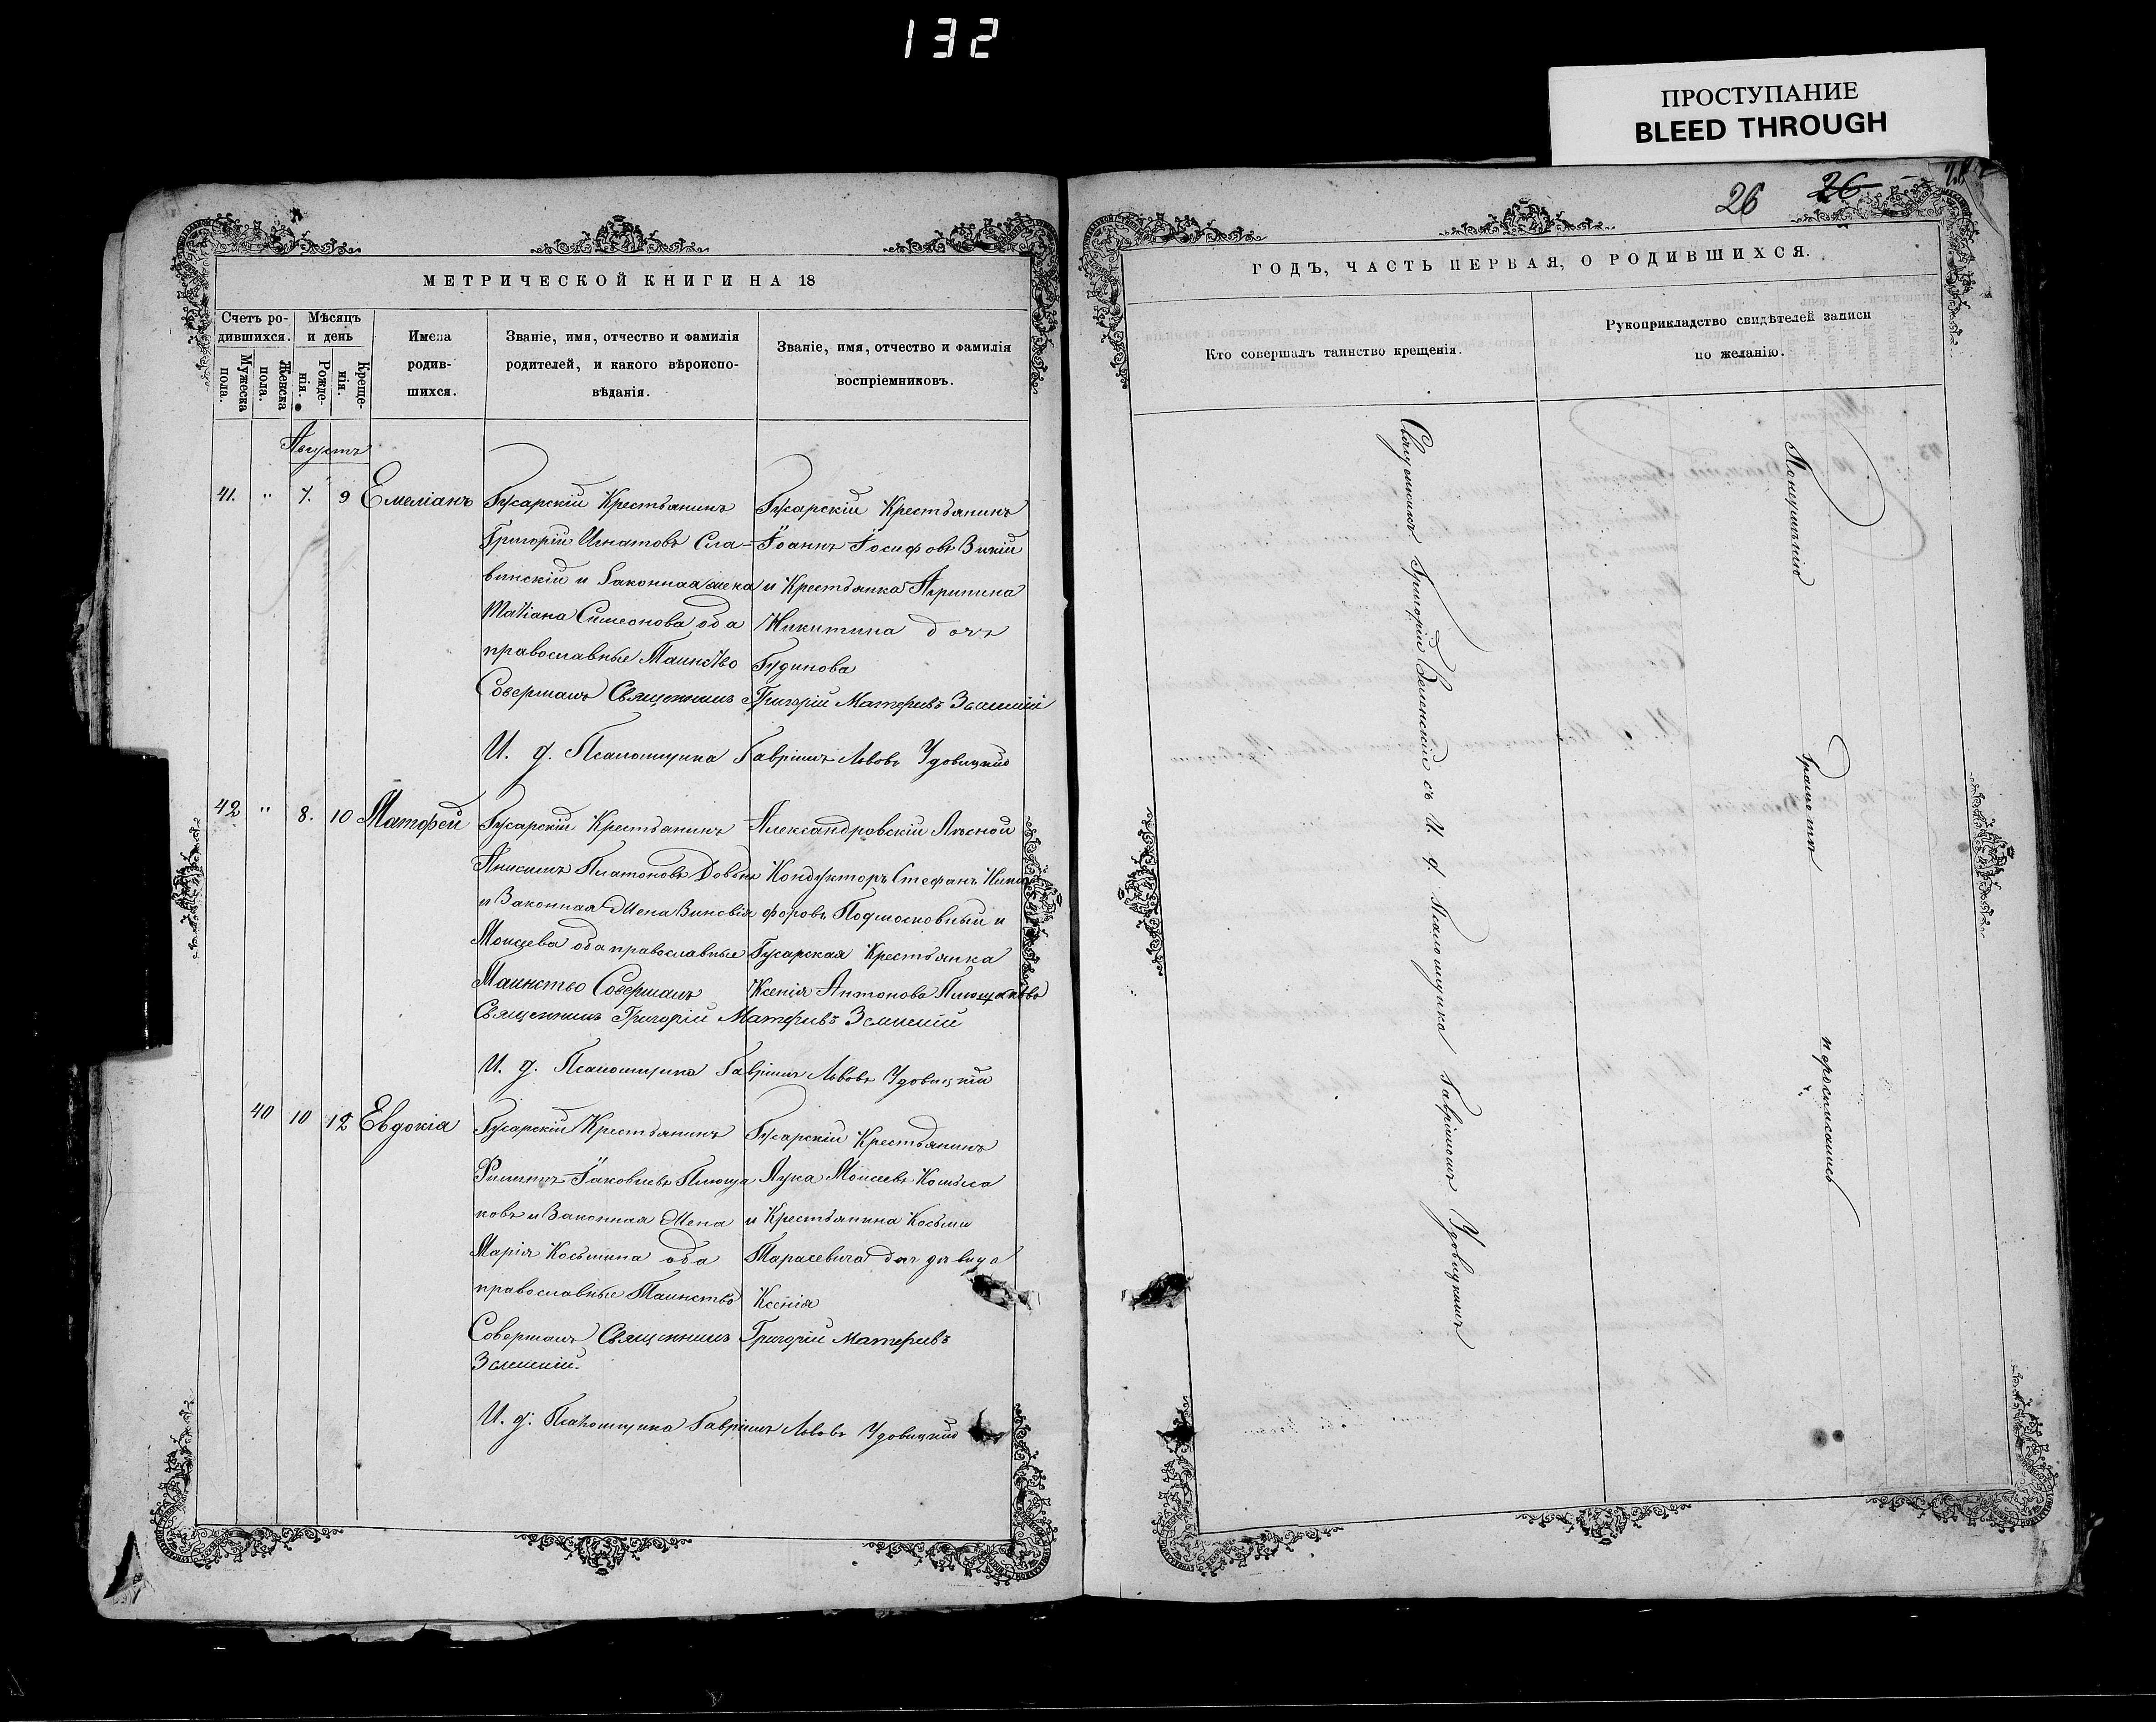 132
ПРОСТУПАНИЕ
BLEED THROUGH
26
26
МЕТРИЧЕСКОЙ КНИГИ НА 18
Счетъ ро-
дившихся.
Мѣсяцъ
и день
Мужеска
пола.
Женска
пола.
Рожде-
нія.
Креще-
нія.
Имена
родив-
шихся.
Званіе, имя, отчество и фамилія
родителей, и какого вѣроиспо-
вѣданія.
Званіе, имя, отчество и фамилія
воспріемниковъ.
Августъ
41. " 7. 9 Емеліанъ
Гусарскій Крестьянинъ
Григорій Игнатовъ Сла-
винскій и Законная жена
Татіана Симеонова оба
православные Таинство
Гусарскій Крестьянинъ
Іоаннъ Іосифовъ
и Крестьянка Агрипина
Никитина дочь
Гудинова
Совершалъ Священникъ Григорій
И. д. Псаломщика Гавріилъ Львовъ Удовицкій
42 " 8. 10 Матѳей
Гусарскій Крестьянинъ
Анисимъ Платоновъ
и Законная Жена Зиновія
Моисеева оба православные
Таинство Совершалъ
Александровскій Лѣсной
Кондукторъ Стефанъ Ники-
форовъ Подмосковный и
Гусарская Крестьянка
Ксенія Антонова
Священникъ Григорій
И. д. Псаломщика Гавріилъ Львовъ Удовицкій
40 10 12 Евдокіа
Гусарскій Крестьянинъ
Филиппъ Іаковлевъ Плюща
ковъ и Законная Жена
Марія Косьмина оба
православные Таинство
Гусарскій Крестьянинъ
Лука Моисеевъ
и Крестьянина Косьмы
Тарасевича дочь дѣвица
Ксенія
Совершалъ Священникъ Григорій
И. д. Псаломщика Гавріилъ Львовъ Удовицкій
ГОДЪ, ЧАСТЬ ПЕРВАЯ, О РОДИВШИХСЯ.
Кто совершалъ таинство крещенія.
Рукоприкладство свидѣтелей записи
по желанію.
Священникъ Григорій съ И. д. Псаломщика Гавріиломъ Удовицкимъ
По неумѣнію грамоты